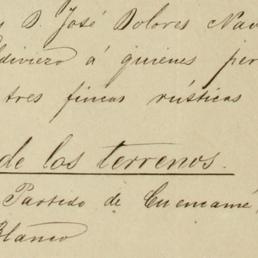 y D. José Dolores Nav
diviezo á quienes per
tres fincas rústicas
de los terrenos.
Partido de Cuencamé
Blanco